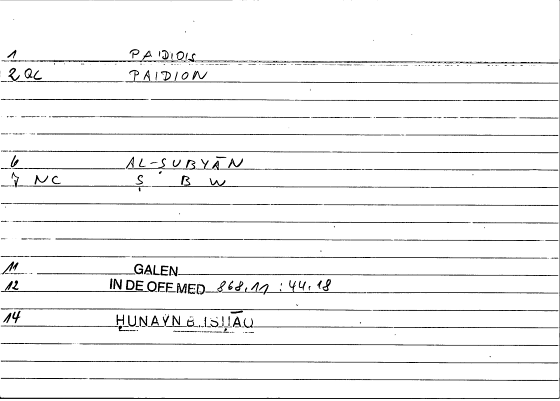 1 PAIDIOIS
2 QL PAIDION
6 AL-ṢUBYĀN
7 NC Ṣ B W
11 GALEN
12 IN DE OFF.MED 868,11 : 44,18
14 ḤUNAYN B. ISḤĀQ